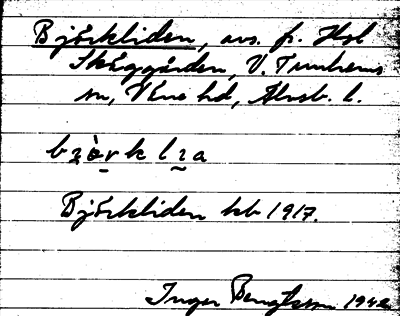 Björkliden, avs. fr. Hsl
Skåggården, V. Tunhems
sn, Väne hd, Älvsb. l.
bjòrk lıa
Björkliden kb 1917.
Inger Bengtsson 1942